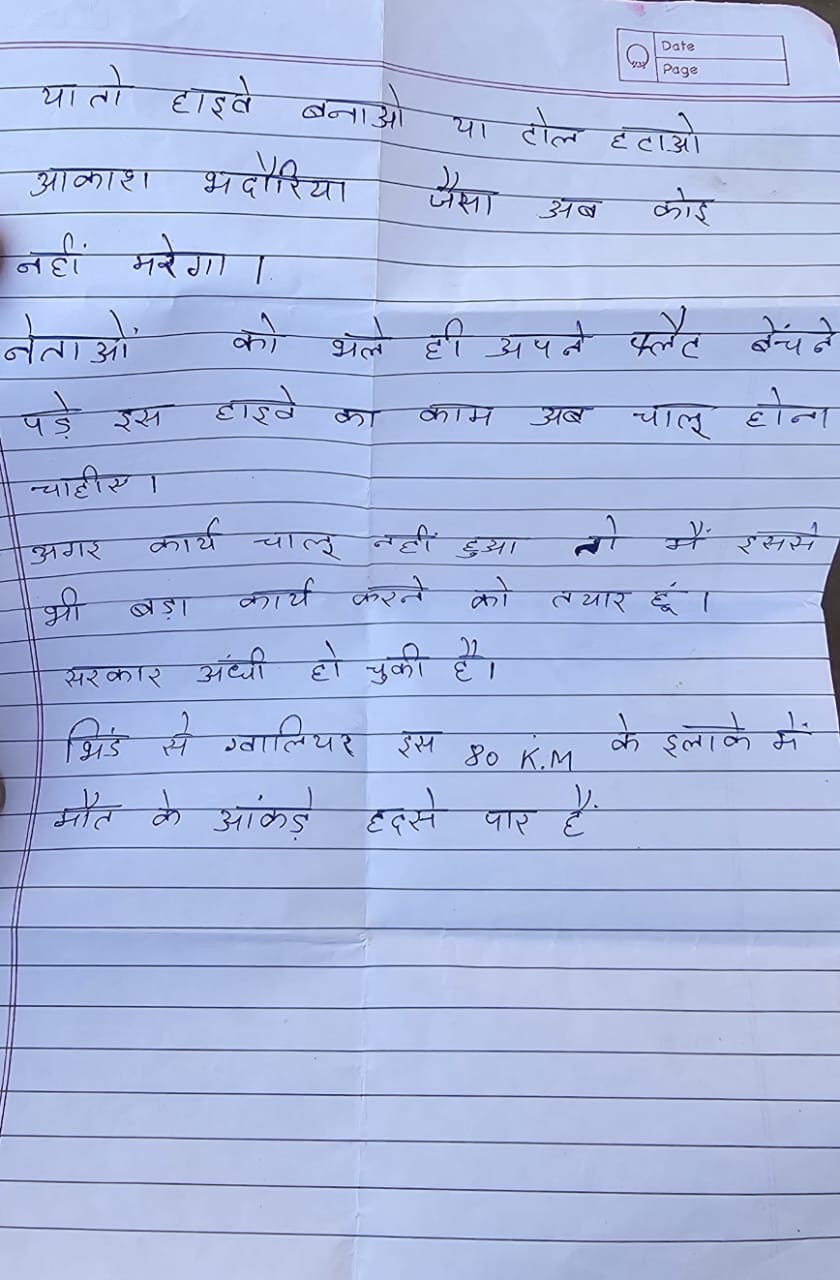 Date
Page
या तो हाइवे बनाओ या टोल हटाओ
आकाश भदौरिया जैसा अब कोइ
नहीं मरेगा ।
नेताओं को भले ही अपने फ्लैट बेंचने
पड़े इस हाइवे का काम अब चालू होना
चाहीए ।
अगर कार्य चालू नहीं हुआ तो मैं इससे
भी बड़ा कार्य करने को तयार हूं ।
सरकार अंधी हो चुकी है ।
भिंड से ग्वालियर इस 80 K.M के इलाके में
मौत के आंकड़े हदसे पार हैं